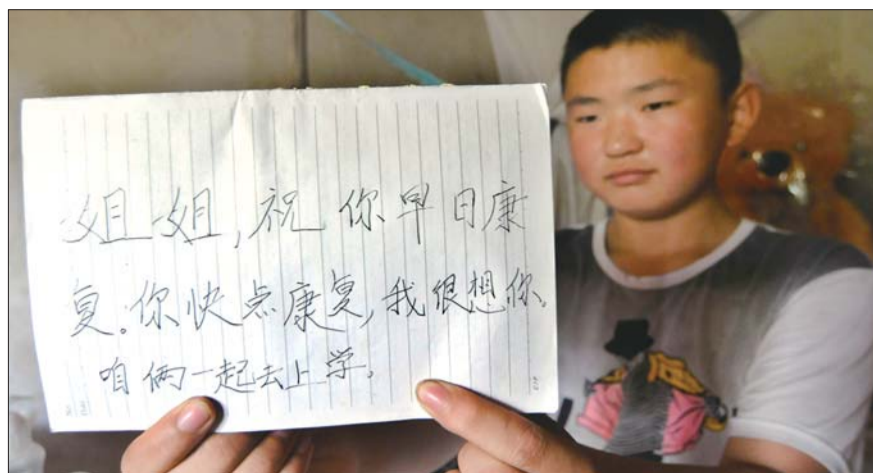 姐姐,祝你早日康
复。你快点康复,我很想你。
咱俩一起去上学。